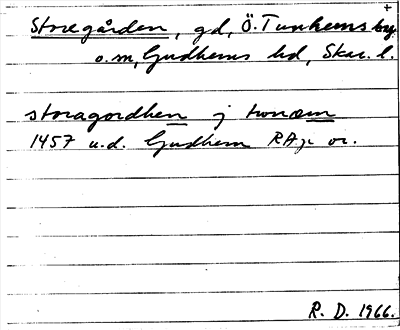 +
Storegården, gd, Ö. Tunhems by
o. sn, Gudhems hd, Skar. l.
storagordhen j tunæm
1457 u.d. Gudhem RAp or.
R. D. 1966.